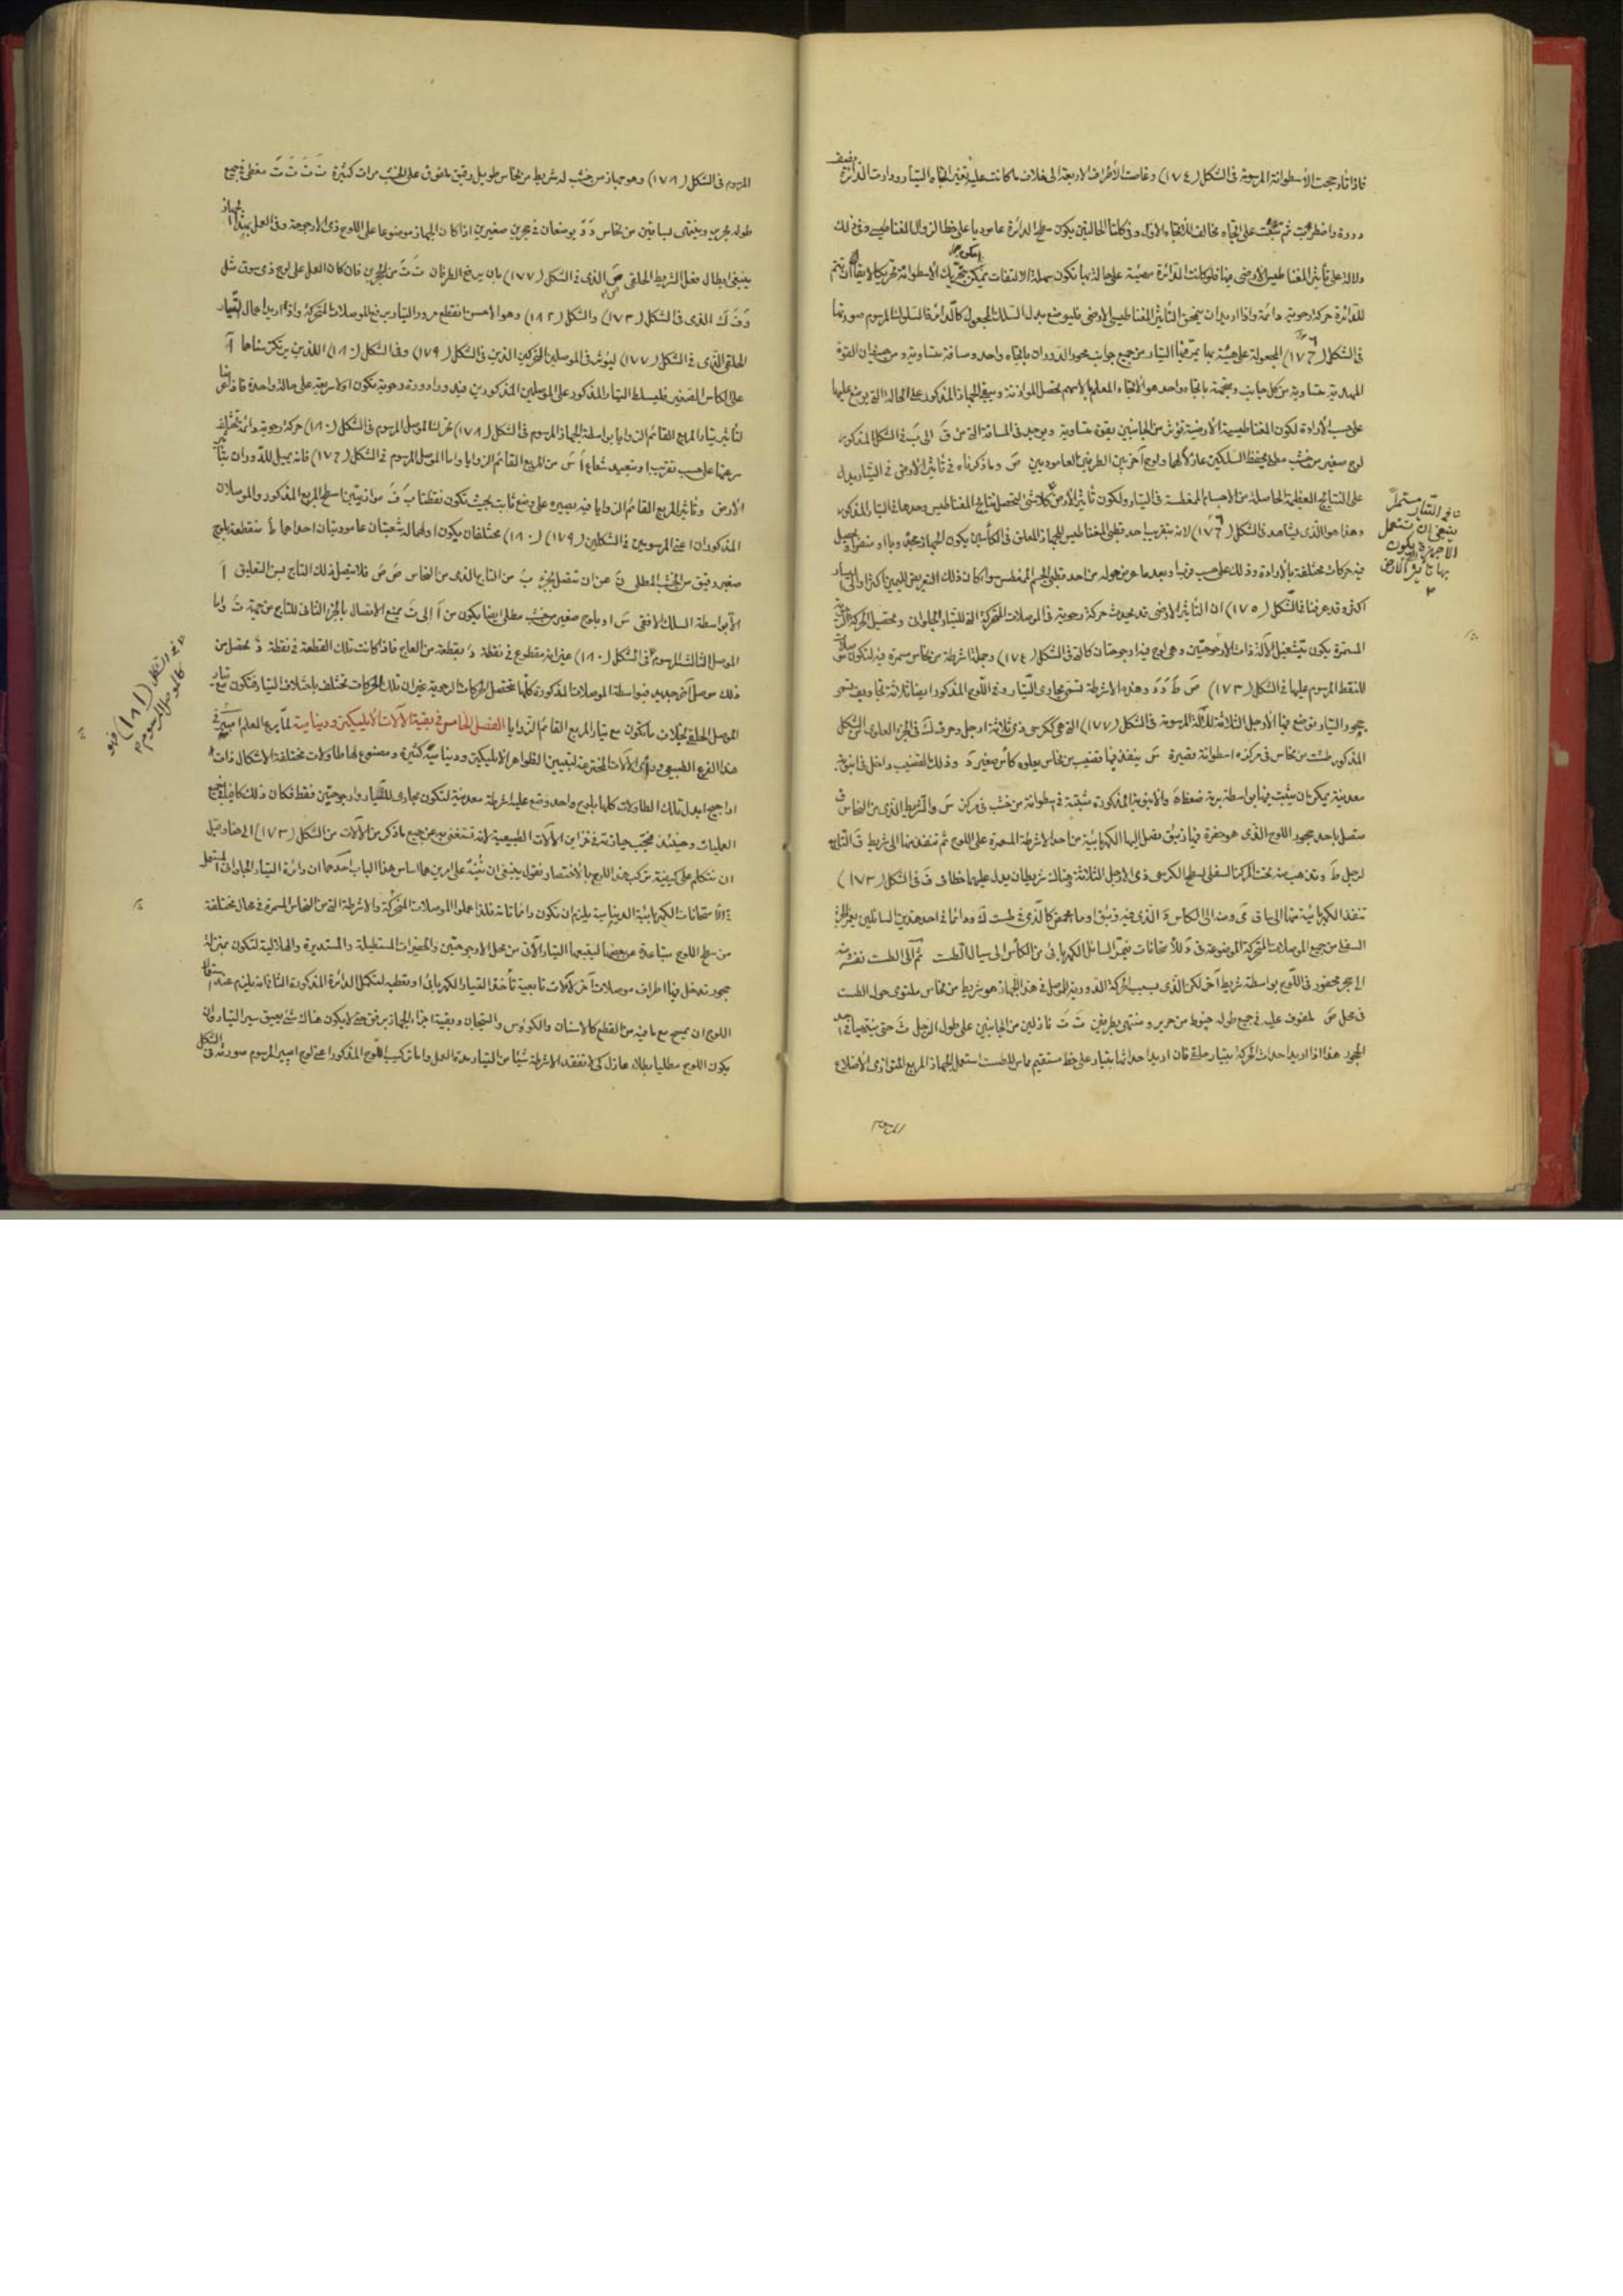 فاذا تارجحت الأسطوانة المرسومة فى الشكل (١٧٤) وغاصت الأطراف الاربعة الى خلاف ما كانت عليه تغير اتجاه التيار ودارت الدائرة نصف
دورة واضطربت ثم ثبتت على اتجاه مخالف للاتجاه الأول وفى كلتا الحالتين يكون سطح الدائرة عاموديا على خط الزوال المغناطيسى وفى ذلك
دلالة على تأثير المغناطيس الأرضى فلو كانت الدائرة على حالة بها تكون سهلة الالتفات يمكن تحريك الأسطوانة
للدائرة حركة رحوية دائمة واذا اريد ان التأثير المغناطيسى الأرضى بدل السلك المرسوم صورتها
فى الشكل (١٧٦) المجعولة على هيئة بها يمر فيها التيار من جميع جوانب محور الدوران باتجاه واحد ومسافة متساوية ومن القوة
متساوية من كل جانب ومتجهة باتجاه واحد هو الاتجاه المعلم بالاسهم يحصل الموازنة ويبقى الجهاز المذكور على الحالة التى يوضع عليها
على حسب الأرادة لكون المغناطيسية الأرضية تؤثر من الجانبين بقوة متساوية ويوجد فى المسافة التى من ق الى ب فى الشكل المذكور
لوح صغير من خشب يحفظ السلكين ولوح آخر بين الطرفين العاموديين ص وما ذكرناه فى تأثير الأرض فى التيار يدل
على النتائج العظيمة الحاصلة من الاجسام المغطسة فى التيار ولكون تأثير الأرض كلا شئ لتحصل نتائج المغناطيس وحدها فى التيار المذكور
وهذا هو الذى يشاهد فى الشكل (١٧٦) لانه بتقريب احد قطبى المغناطيس للجهاز المعلق فى الكأسين يكون الجهاز مجذوبا او منفرا
فيه حركات مختلفة بالأرادة وذلك على حسب قرب وبعد ما عرض حوله من احد قطبى الجسم المغطس سواء كان ذلك التعريض لليمين اكثر او الى اليسار
اكثر وقد عرفنا فى الشكل (١٧٥) ان التأثير الأرضى قد يحدث حركة رحوية فى الموصلات المتحركة للتيار الجلوانى وتحصيل الحركة الرحوية
المستمرة يكون بتشغيل الآلة ذات الأرجوحتين وهى لوح فيه ارجوحتان كالتى فى الشكل (١٧٤) وجملة اشرطة من نحاس مسمرة فيه لتكون
للنقط المرسوم عليها فى الشكل (١٧٣) ص ط د د وهذه الاشرطة تسمى مجارى التيار وفى اللوح المذكور ايضا ثلاثة تجاويف تسمى
بحجور التيار توضع فيها الأرجل الثلاثة للآلة المرسومة فى الشكل (١٧٧) التى هى ككرسى ذى ثلاثة ارجل وحرف ك فى الجزء العلوى من الشكل
المذكور طشت من نحاس فى مركزه اسطوانة قصيرة س ينفذ فيها قضيب من نحاس يعلوه كأس صغير د وذلك القضيب داخل فى انبوبة
معدنية يمكن ان يثبت فيها بواسطة برمة ضغط ه والأنبوبة المذكورة مثبتة فى اسطوانة من خشب فى مركز س والشريط الذى من النحاس ق
متصل باحد حجور اللوح الذى هو حفرة فيها زيبق تصل اليها الكهربائية من احد الاشرطة المسمرة على اللوح ثم تنفذ منها الى شريط ق التابع
لرجل ط وتذهب منه تحت المركز السفلى لسطح الكرسى ذى الارجل الثلاثة وهناك شريطان يدل عليهما خطا ف ف فى الشكل (١٧٣)
تنفذ الكهربائية منهما الى ساق ى ومنه الى الكاس د الذى فيه زيبق او ماء محمض كالذى فى طست ك ودائما فى احد هذين السائلين يغمر الجزء
السفلى من جميع الموصلات المتحركة الموضوعة فى د للأمتحانات فيمر السائل الكهربائى من الكأس الى سيال الطست ثم الى الطست نفسه ثم منه
الى حجر محفور فى اللوح بواسطة شريط آخر لكن الذى يسبب الحركة الدورية للموصل فى هذا الجهاز هو شريط من نحاس ملتوى حول الطست
فى محل ص ملفوف عليه فى جميع طوله خيوط من حرير ومنتهى بطرفين ت ت نازلين من الجانبين على طول الرجل ث حتى ينتهيا فى احد
الحجور هذا اذا اريد احداث الحركة بتيار حلقى فان اريد احداثها بتيار على خط مستقيم مماس للطست استعمل الجهاز المربع المتوازى الأضلاع
المرسوم
تأثير التيار مستمرا
ينبغى ان تستعمل
الاجهزة التى يكون
بها تأثير الأرض
المرسوم فى الشكل (١٧٨) وهو جهاز من خشب له شريط من نحاس طويل رقيق ملفوف على الخشب مرات كثيرة ت ت ت ت مغطى فى جميع
طوله بحرير وينتهى بساقين من نحاس د د يوضعان فى حجرين صغيرين اذا كان الجهاز موضوعا على اللوح ذى الارجوحة وفى العمل بهذا الجهاز
ينبغى ابطال فعل الشريط الحلقى ص الذى فى الشكل (١٧٧) بان يرفع الطرفان ت ت من الحجرين فان كان العمل على لوح ذى سوق مثل
د ف ك الذى فى الشكل (١٧٣) والشكل (١٨٢) وهو الاحسن انقطع مرور التيار برفع الموصلات المتحركة واذا اريد اعمال التيار
الحلقى الذى فى الشكل (١٧٧) ليؤثر فى الموصلين المتحركين الذين فى الشكل (١٧٩) وفى الشكل (١٨٠) اللذين يرتكز سنا هما آ
على الكاس الصغير فليسلط التيار المذكور على الموصلين المذكورين فيدورا دورة رحوية تكون اولا سريعة على حالة واحدة فاذا تعرضا
لتأثير تيار المربع القائم الزوايا بواسطة الجهاز المرسوم فى الشكل (١٧٨) تحرك الموصل المرسوم فى الشكل (١٨٠) حركة رحوية دائمة تختلف
سرعتها على حسب تقريب او تبعيد شعاع أ س من المربع القائم الزوايا واما الموصل المرسوم فى الشكل (١٧٩) فانه يميل للدوران بتأثير
الأرض وتأثير المربع القائم الزوايا فيه يصيره على وضع ثابت بحيث تكون نقطتا ب ف موازيتين لسطح المربع المذكور والموصلان
المذكوران اعنى المرسومين فى الشكلين (١٧٩) (١٨٠) مختلفان بكون اولهما له شعبتان عاموديتان احداهما ط منقطعة بلوح
صغير رقيق من الخشب المطلى ق عن ان تتصل بجزء ب من التاج الذى من النحاس ص ص فلا يتصل ذلك التاج بسن التعليق آ
الا بواسطة السلك الافقى س او بلوح صغير من خشب مطلى ايضا يكون من أ الى ث يمنع الاتصال بالجزء الثانى للتاج من جهة ث واما
الموصل الثالث المرسوم فى الشكل (١٨٠) غير انه مقطوع فى نقطة د بقطعة من العاج فاذا كانت تلك القطعة فى نقطة د تحصل من
ذلك موصل آخر جديد فبواسطة الموصلات المذكورة كلها تتحصل الحركات الرحوية غير ان تلك الحركات تختلف باختلاف التيار فتكون مع تيار
الموصل الحلقى بخلاف ما تكون مع تيار المربع القائم الزوايا الفصل الخامس فى بقية الآلات الأيليكترودينامية لما رأى المعلم امبير فى
هذا الفرع الطبيعى ورأى الآلات المخترعة لتبيين الظواهر الأيليكترودينامية كثيرة ومصنوع لها طاولات مختلفة الاشكال ذات
اراجيح ابدل تلك الطاولات كلها بلوح واحد وضع عليه اشرطة معدنية لتكون مجارى للتيار وارجوحتين فقط فكان ذلك كافيا فى جميع
العمليات وحينئذ فيجب حيازته فى خزاين الآلات الطبيعية لانه تستغنى به عن جميع ما ذكر من الآلات من الشكل (١٧٣) الى هنا وقبل
ان نتكلم على كيفية تركيب هذا اللوح بالأختصار نقول ينبغى ان ننبه على امرين هما اساس هذا الباب احدهما ان دائرة التيار الجلوانى المستعمل
فى الأمتحانات الكهربائية الدينامية يلزم ان تكون دائما تامة فلذا عملوا الموصلات المتحركة والاشرطة التى من النحاس المسمرة فى محال مختلفة
من سطح اللوح متباعدة عن بعضها ليتبعها التيار الآتى من محل الارجوحتين والحفيرات المستطيلة والمستديرة والهلالية لتكون بمنزلة
حجور تدخل فيها اطراف موصلات آخر لآلات تابعية تأخذ التيار الكهربائى او تعطيه لتكمل الدائرة المذكورة الثانى انه يلزم عند استعمال
اللوح ان يمسح مع ما فيه من القطع كالاسنان والكؤوس والتيجان وبقية اجزاء الجهاز برفق حتى لا يكون هناك شئ يعيق سير التيار وان
يكون اللوح مطليا بطلاء عازل كى لا تفقد الاشرطة شيئا من التيار مدة العمل واما تركيب اللوح المذكور اعنى لوح امبير المرسوم صورته فى الشكل
فى الشكل (١٨١) فهو
كالموصل المرسوم